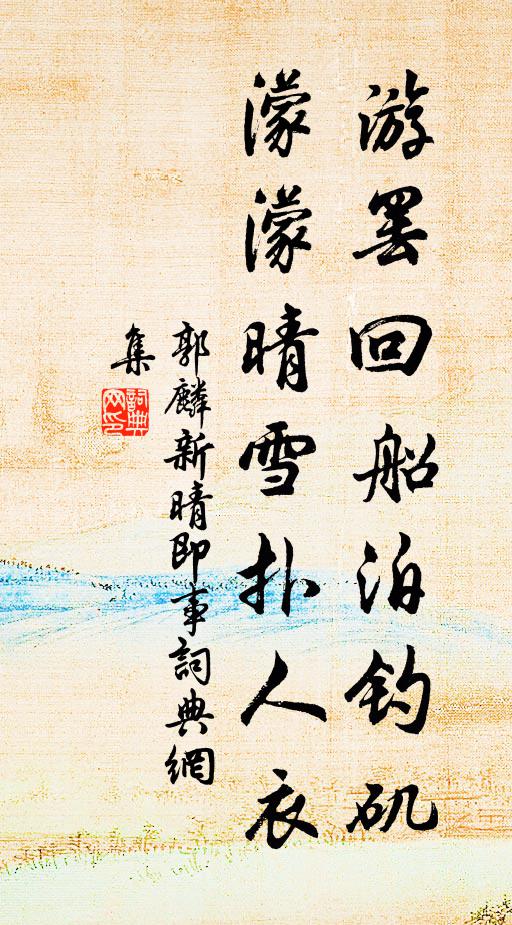 游罢回船泊钓矶
濛濛晴雪扑人衣
郭麟新晴即事詞典網
集
詞典网印